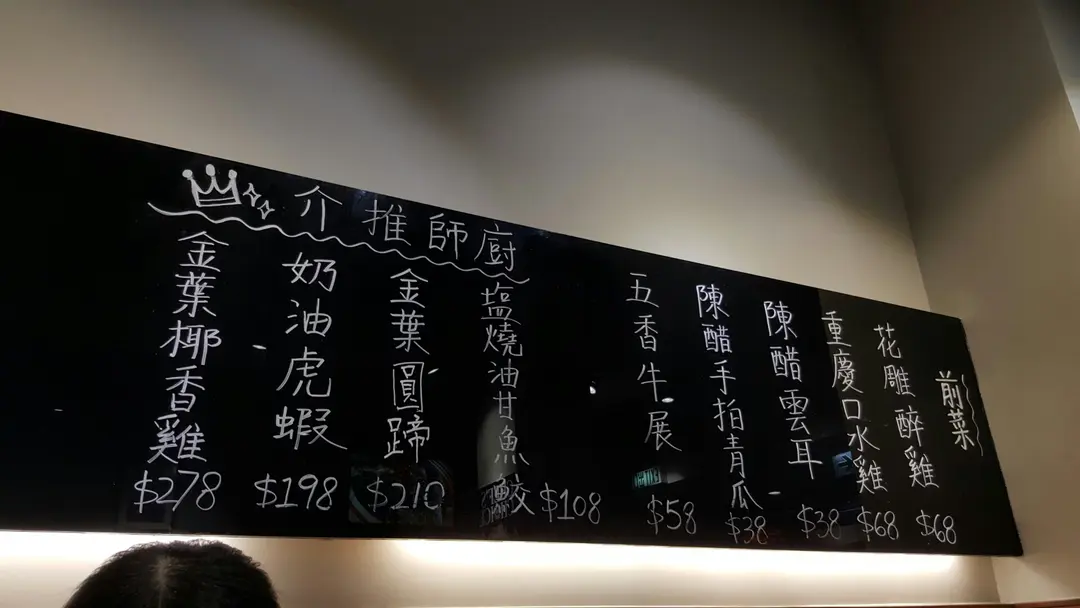 前菜
花雕醉雞
$68
重慶口水雞
$68
陳醋雲耳
$38
陳醋手拍青瓜
$38
五香牛展
$58
廚師推介
塩燒油甘魚鮫
$108
金葉圓蹄
$210
奶油虎蝦
$198
金葉椰香雞
$278